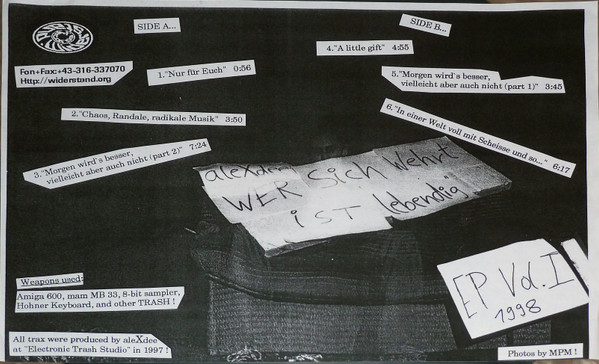 SIDE A...
SIDE B...
Fon+Fax:+43-316-337070
Http://widerstand.org
1."Nur für Euch" 0:56
2."Chaos, Randale, radikale Musik" 3:50
3."Morgen wird's besser,
vielleicht aber auch nicht (part 2)" 7:24
4."A little gift" 4:55
5."Morgen wird's besser,
vielleicht aber auch nicht (part 1)" 3:45
6."In einer Welt voll mit Scheisse und so..." 6:17
aleXdee
WER sich wehrt
iST lebendig
EP Vol. I
1998
Weapons used:
Amiga 600, mam MB 33, 8-bit sampler,
Hohner Keyboard, and other TRASH !
All trax were produced by aleXdee
at "Electronic Trash Studio" in 1997 !
Photos by MPM !